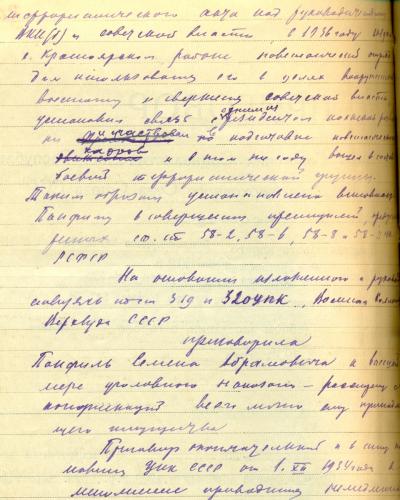 террористического акта над руководителями
ВКП(б) и советской власти, в 1936 году
в Красноярском районе повстанческий отряд
использовать его в целях вооруженного
восстания и свержения советской власти
установил связь с
по подготовке повстанческих
кадров
и в том же году вошел в состав
боевой террористической группы.
Таким образом установлена виновность
Панфиль в совершении преступлений предусмо-
ренных ст. ст. 58-2, 58-6, 58-8 и 58-11 УК
РСФСР
На основании изложенного и руковод-
ствуясь ст. ст. 319 и 320 УПК, Военная Коллегия
Верхсуда СССР
приговорила
Панфиль Семена Абрамовича к высшей
мере уголовного наказания – расстрелу с
конфискацией всего лично ему принадлежа-
щего имущества
Приговор окончательный и в силу по-
становления ЦИК СССР от 1. XII 1934 года
исполнение приводится немедленно